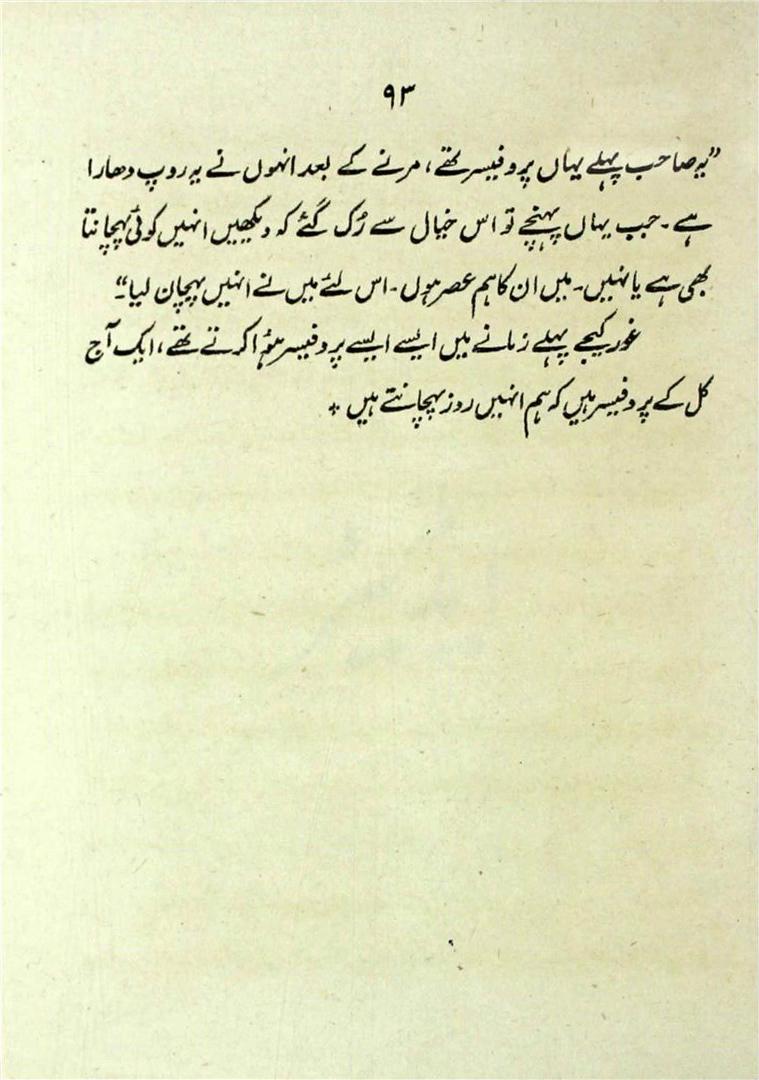 ۹۳
”یہ صاحب پہلے یہاں پروفیسر تھے، مرنے کے بعد انہوں نے یہ روپ دھارا
ہے۔ جب یہاں پہنچے تو اس خیال سے رُک گئے کہ دیکھیں انہیں کوئی پہچانتا
بھی ہے یا نہیں۔ میں ان کا ہم عصر ہوں۔ اس لئے میں نے انہیں پہچان لیا“۔
غور کیجے پہلے زمانے میں ایسے ایسے پروفیسر ہؤا کرتے تھے، ایک آج
کل کے پروفیسر ہیں کہ ہم انہیں روز پہچانتے ہیں ٭